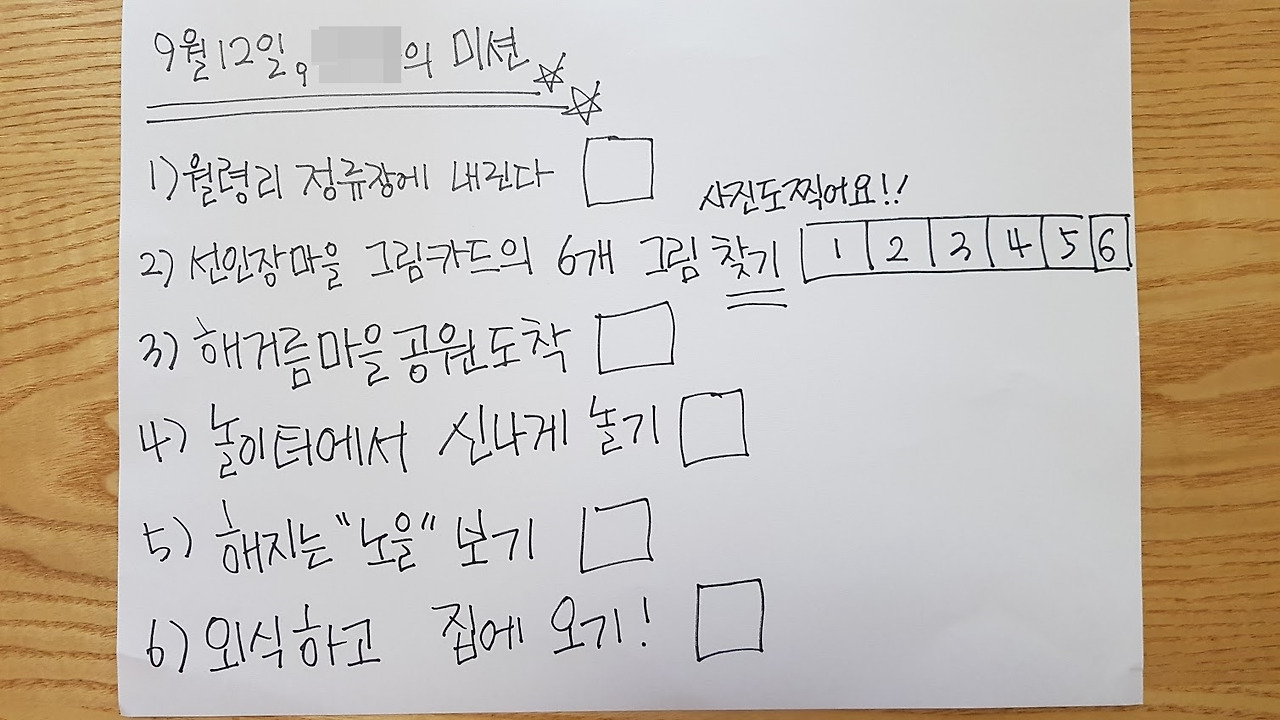 9월12일, 의 미션
1) 월령리 정류장에 내린다
사진도찍어요!!
2) 선인장마을 그림카드의 6개 그림 찾기 1 2 3 4 5 6
3) 해거름마을공원도착
4) 놀이터에서 신나게 놀기
5) 해지는 "노을" 보기
6) 외식하고 집에 오기!